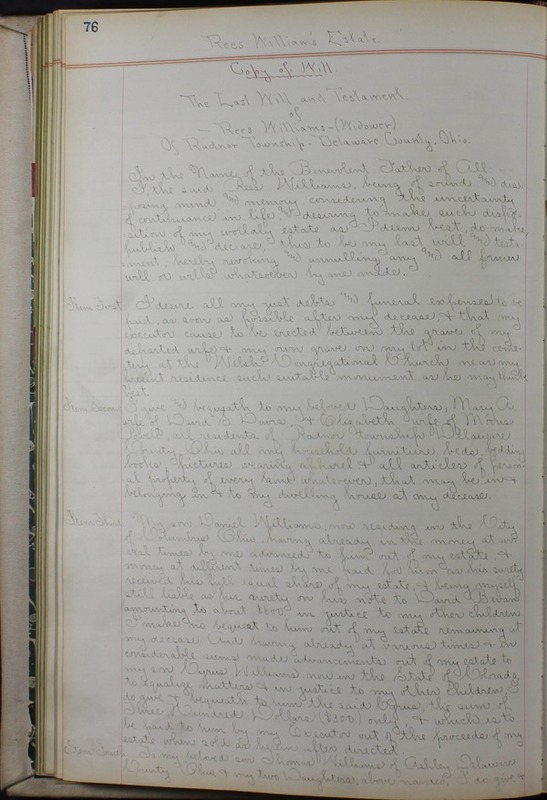 76
Rees William's Estate
Copy of Will
The Last Will and Testament
of
- Rees Williams - (Widower)
Of Radnor Township Delaware County, Ohio.
In the Name of the Benevolent Father of All -
I, the said Rees Williams, being of sound and dis
posing mind and memory, considering the uncertainty
of continuance in life and desiring to make such dispo
sition of my worldly estate as I deem best, do make,
publish and declare, this to be my last will and testa
ment, hereby revoking and annulling any and all former
will or wills whatsoever by me made.
Item First. I desire all my just debts and funeral expenses to be
paid, as soon as possible after my decease, & that my
executor cause to be erected between the grave of my
departed wife & my own grave on my lot in the ceme
tery at the Welsh Congregational Church near my
present residence such suitable monument as he may think
best.
Item Second I give and bequeath to my beloved Daughters, Mary A.
wife of David S. Davis, & Elizabeth wife of Morris
all residents of Radnor Township Delaware
County Ohio all my household furniture beds, bedding
books, pictures wearing apparel & all articles of person
al property of every kind whatsoever, that may be in &
belonging in & to my dwelling house at my decease.
Item Third. My son Daniel Williams, now residing in the City
of Columbus Ohio, having already, in the money at sev
eral times by me advanced to him out of my estate, &
money at different times by me paid for him as his surety
received his full equal share of my estate, & being myself
still liable as his surety on his note to David Bevan
amounting to about $600 in justice to my other children
I make no bequest to him out of my estate remaining at
my decease And having already at various times & in
considerable sums made advancements out of my estate to
my son Cyrus Williams now in the State of Colorado,
to equalize matters & in justice to my other children, I
do give & bequeath to him the said Cyrus, the sum of
Three Hundred Dollars ($300) only, & which is to
be paid to him by my Executor out of the proceeds of my
estate when sold as herein after directed.
Item Fourth To my beloved son Thomas Williams of Ashley Delaware
County Ohio & my two Daughters, above named, I do give &